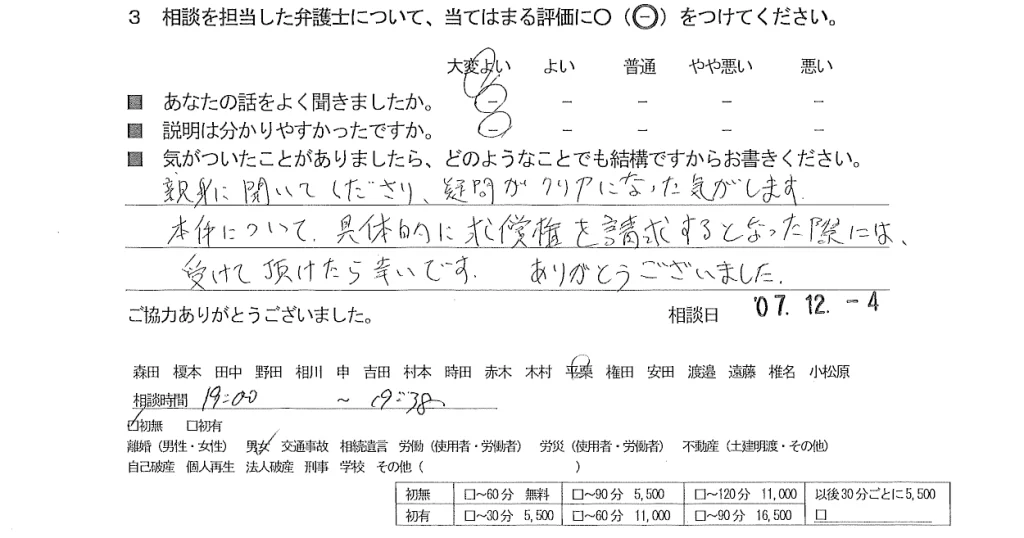 3 相談を担当した弁護士について、当てはまる評価に○（㊀）をつけてください。
大変よい よい 普通 やや悪い 悪い
■ あなたの話をよく聞きましたか。 － － － － －
■ 説明は分かりやすかったですか。 － － － － －
■ 気がついたことがありましたら、どのようなことでも結構ですからお書きください。
親身に聞いてくださり、疑問がクリアになった気がします.
本件について、具体的に求償権を請求するとなった際には、
受けて頂けたら幸いです. ありがとうございました.
ご協力ありがとうございました。 相談日 '07. 12. -4
森田 榎本 田中 野田 相川 申 吉田 村本 時田 赤木 木村 平栗 権田 安田 渡邉 遠藤 椎名 小松原
相談時間 19:00 ～ 19:38
□初無 □初有
離婚（男性・女性） 男女 交通事故 相続遺言 労働（使用者・労働者） 労災（使用者・労働者） 不動産（土建明渡・その他）
自己破産 個人再生 法人破産 刑事 学校 その他（ ）
初無 □～60分 無料 □～90分 5,500 □～120分 11,000 以後30分ごとに5,500
初有 □～30分 5,500 □～60分 11,000 □～90分 16,500 □